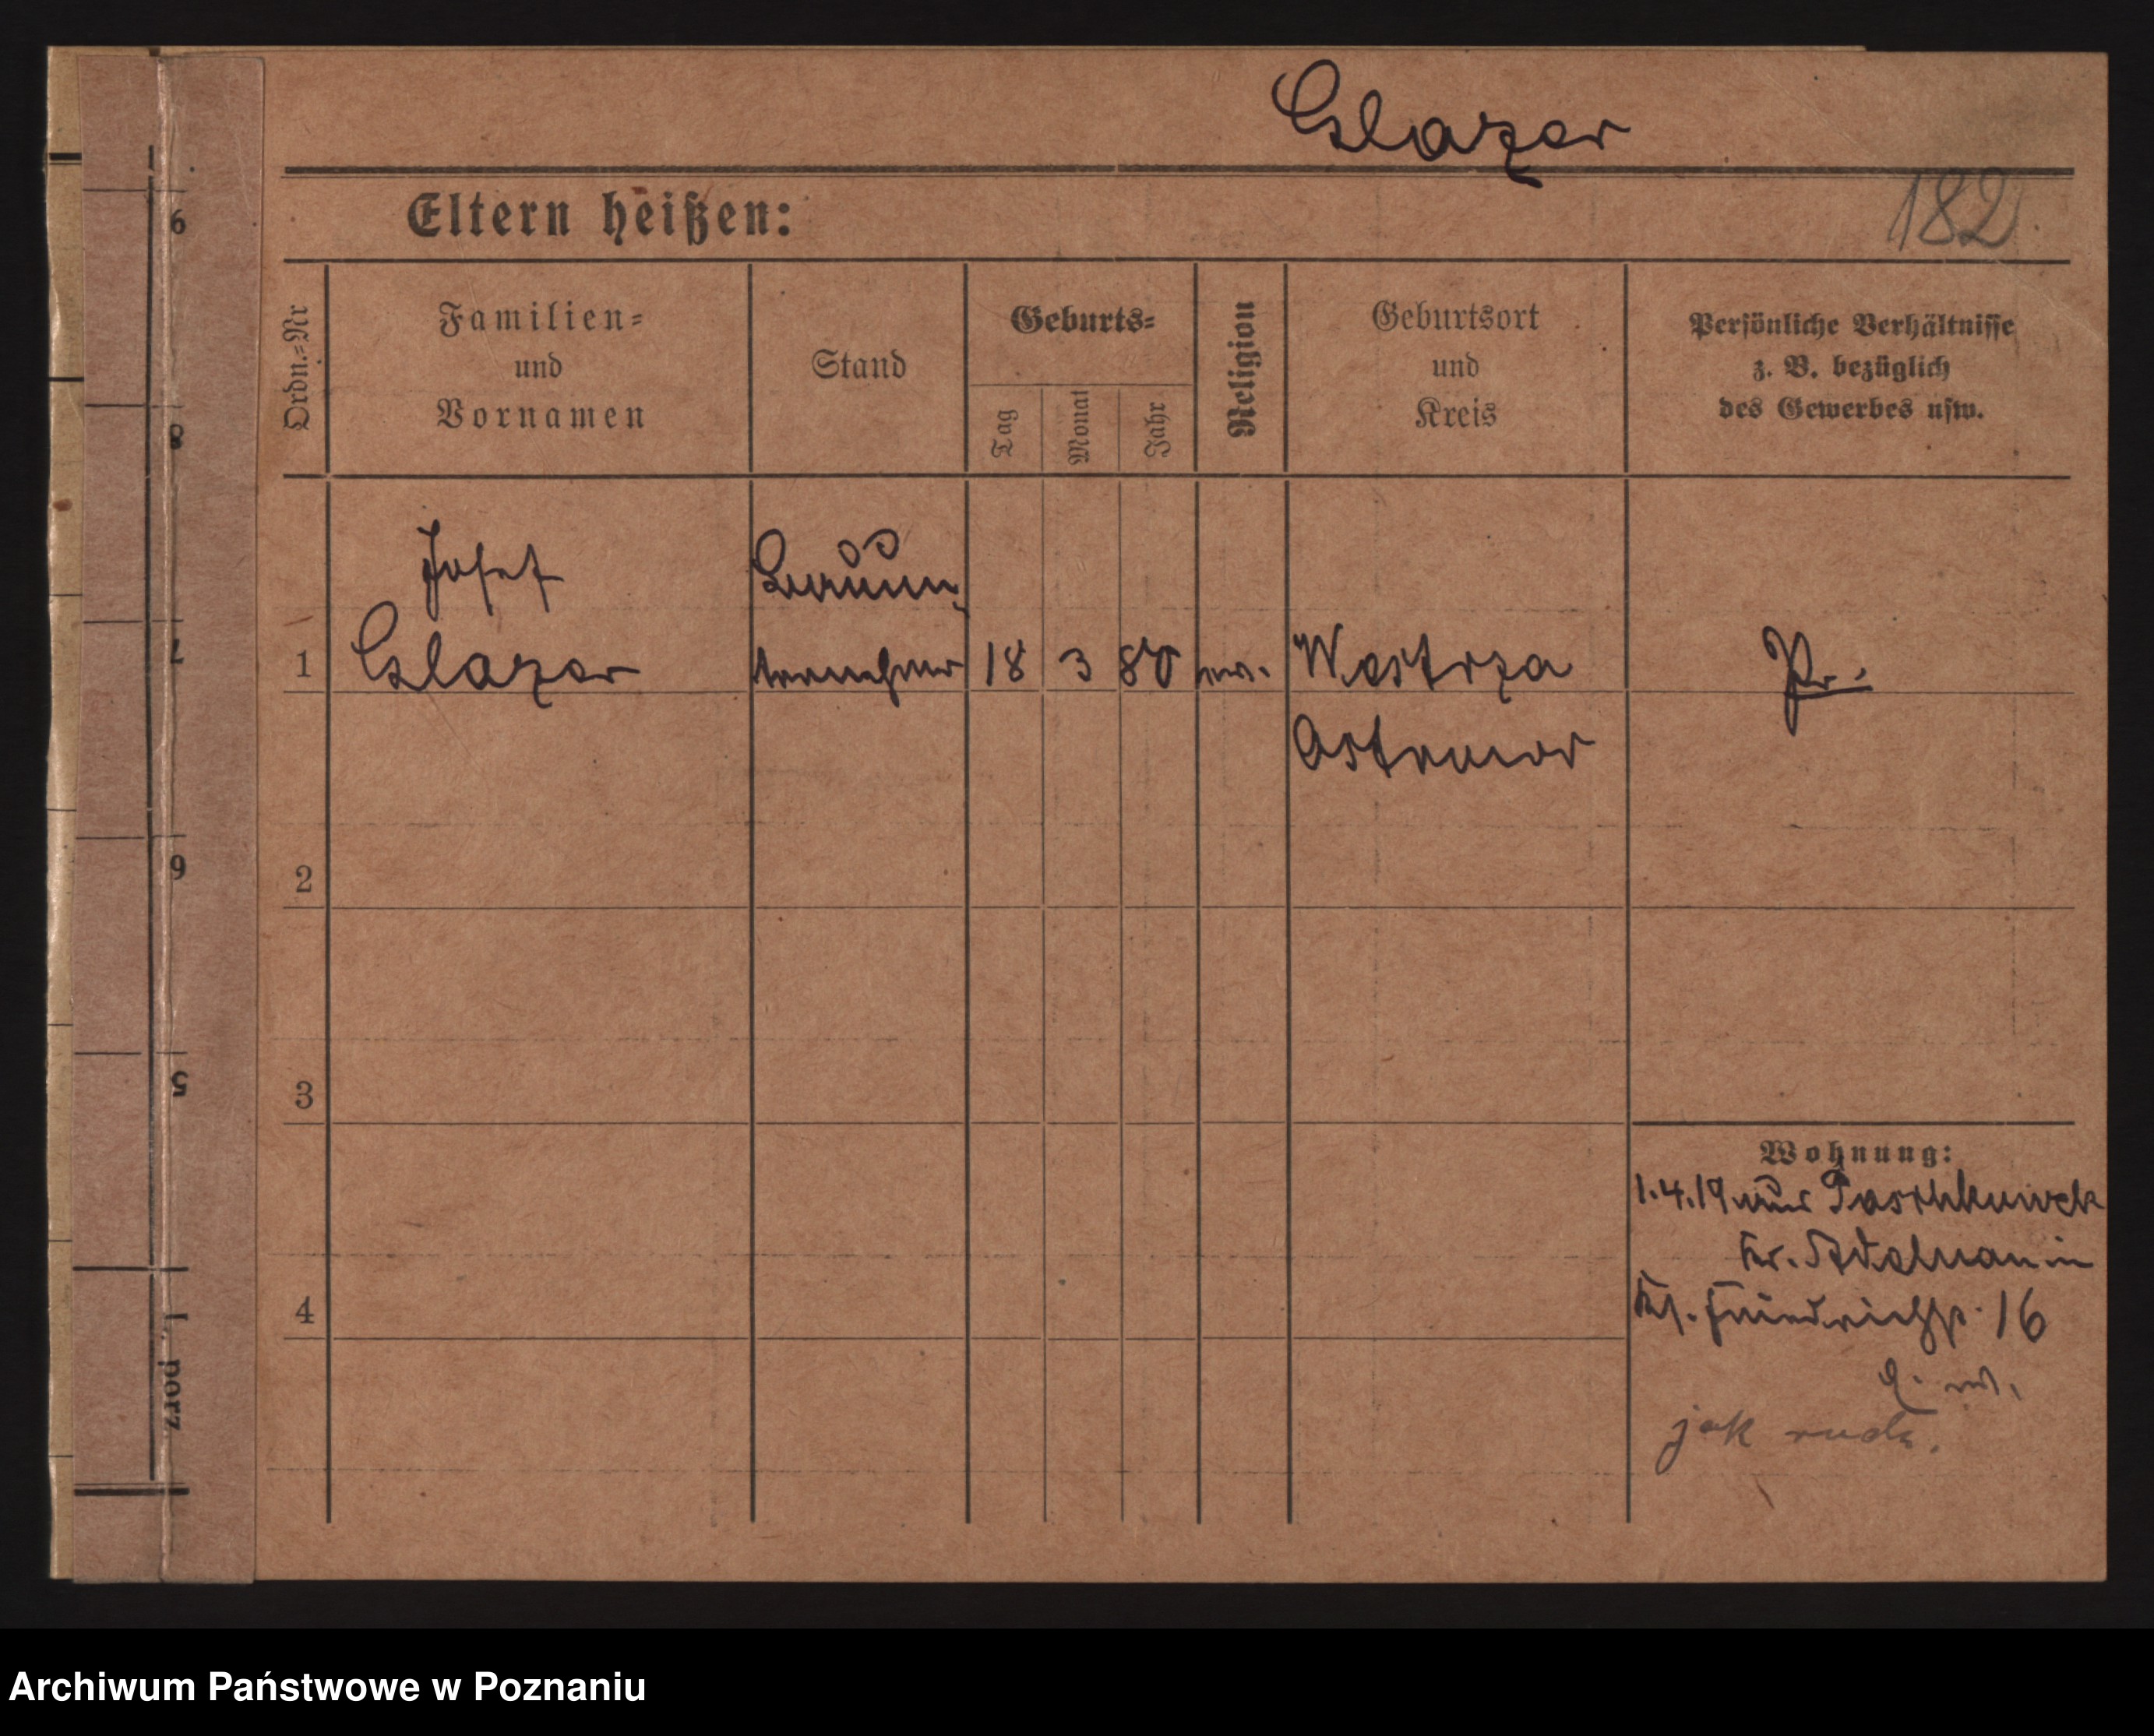 Glazer
182
Eltern heißen:
Ordn.=Nr
Familien=
und
Vornamen
Stand
Geburts=
Tag
Monat
Jahr
Religion
Geburtsort
und
Kreis
Persönliche Verhältnisse
z. B. bezüglich
des Gewerbes usw.
Josef
Bauun
ternehmer
1
Glazer
18
3
80
Westrza
Ostrowo
Pr.
2
3
4
Wohnung:
1.4.19
Kr. Adelnau in
Friedrichstr. 16
jak
9
8
7
6
5
L. porz.
Archiwum Państwowe w Poznaniu